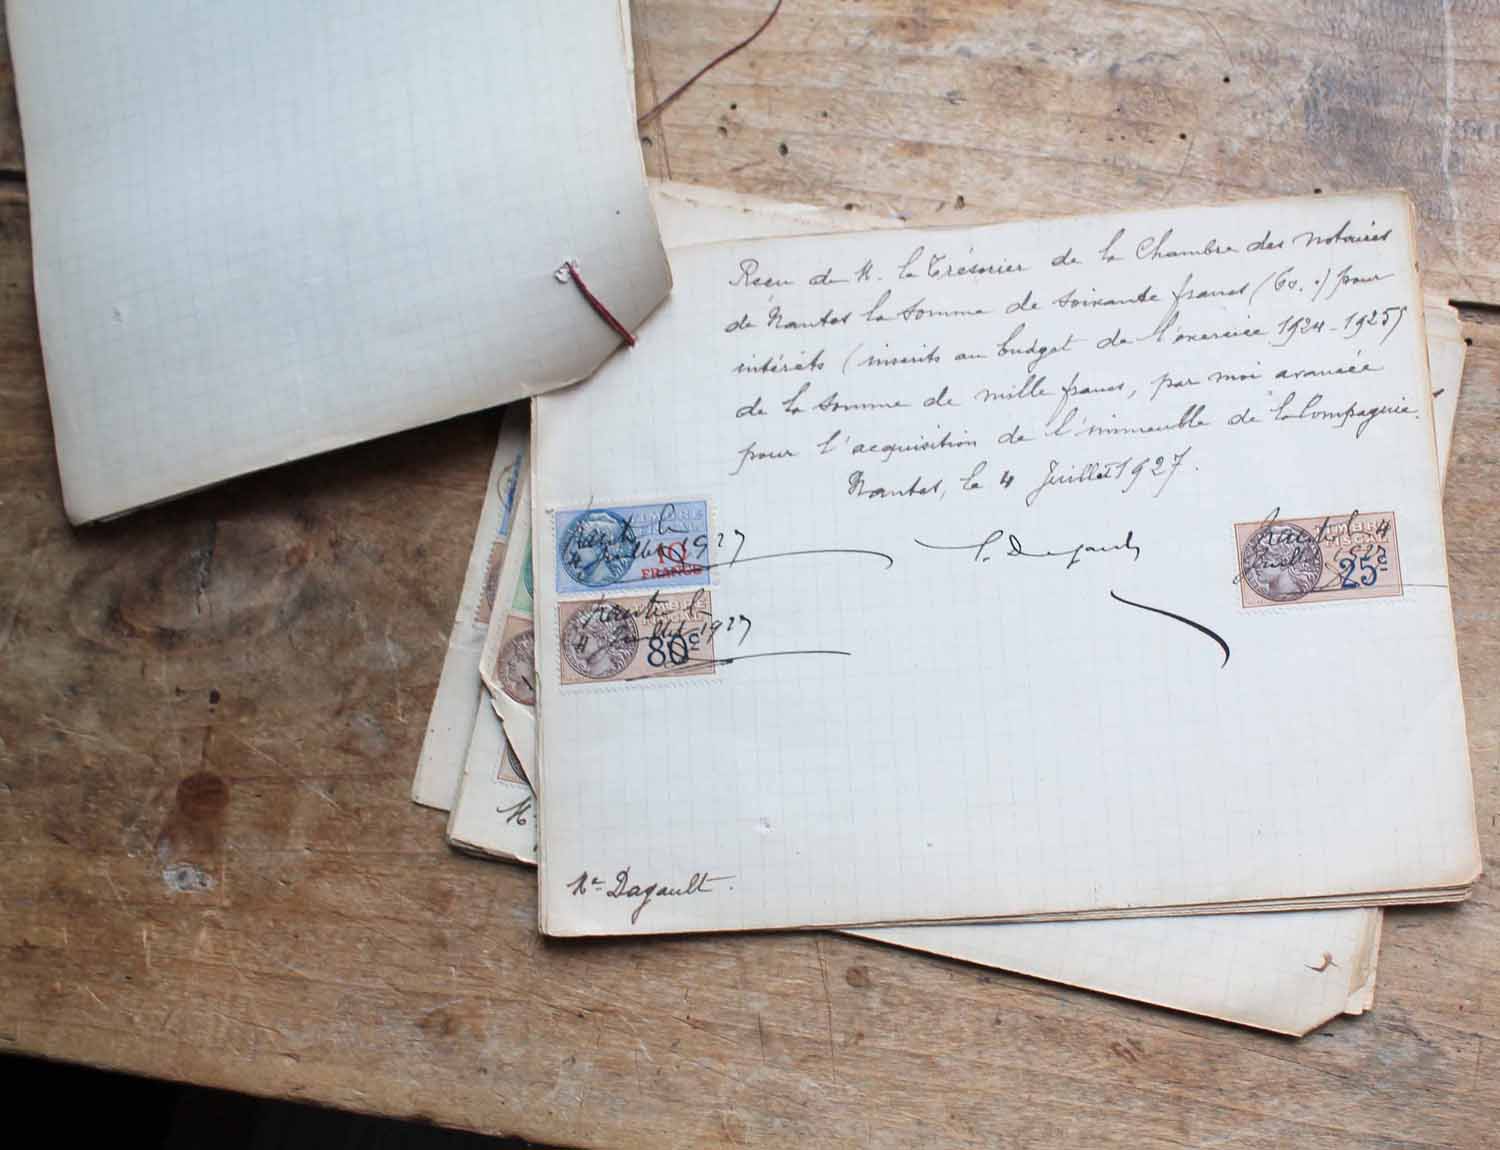 Reçu de M. le Trésorier de la Chambre des Notaires
de Nantes la somme de soixante francs (60. ») pour
intérêts (inscrits au budget de l'exercice 1924-1925)
de la somme de mille francs, par moi avancée
pour l'acquisition de l'immeuble de la Compagnie.
Nantes, le 4 Juillet 1927.
TIMBRE
FISCAL
Nantes le
4 Juillet 1927
10
FRANCS
TIMBRE
Nantes le
4 Juillet 1927
80c
TIMBRE
FISCAL
Nantes le 4
Juillet 1927
25c
Me Dagault.